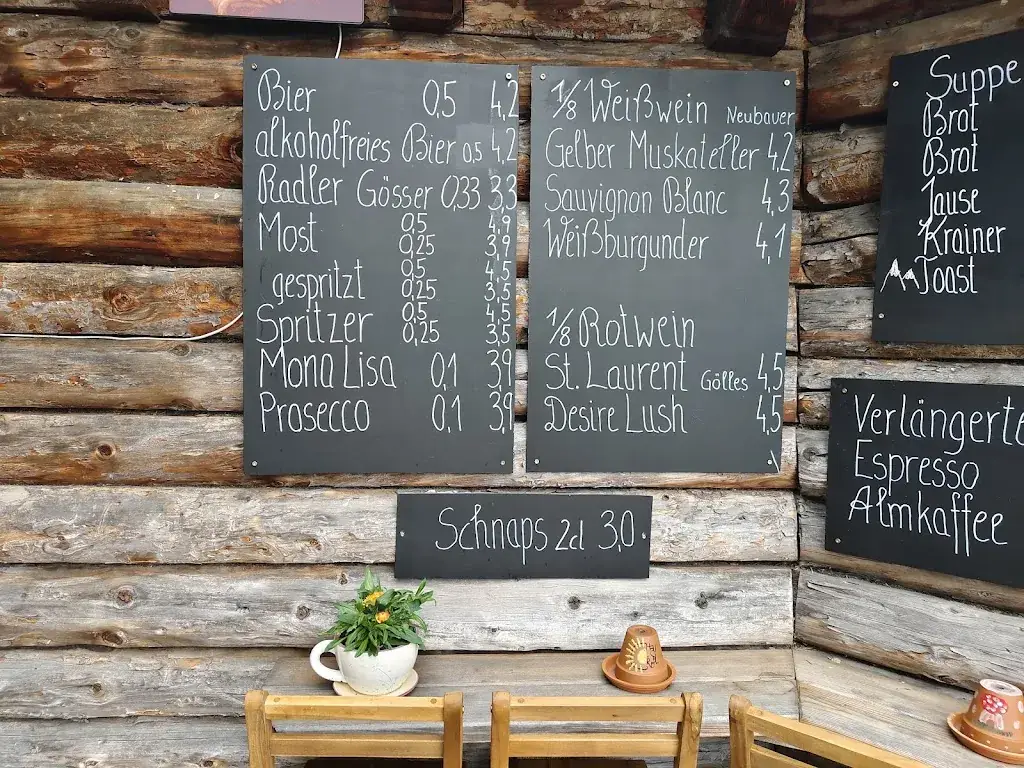 Bier 0,5 4,2
alkoholfreies Bier 0,5 4,2
Radler Gösser 0,33 3,3
Most 0,5 4,9
0,25 3,9
gespritzt 0,5 4,5
0,25 3,5
Spritzer 0,5 4,5
0,25 3,5
Mona Lisa 0,1 3,9
Prosecco 0,1 3,9
1/8 Weißwein Neubauer
Gelber Muskateller 4,2
Sauvignon Blanc 4,3
Weißburgunder 4,1
1/8 Rotwein
St. Laurent Gölles 4,5
Desire Lush 4,5
Schnaps 2cl 3,0
Suppe
Brot
Brot
Jause
Krainer
Toast
Verlängerte
Espresso
Almkaffee